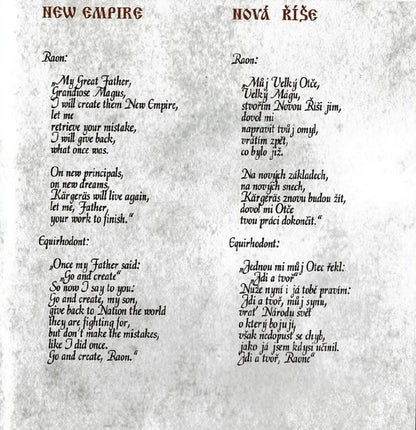 NEW EMPIRE
Raon:
„My Great Father,
Grandiose Magus,
I will create them New Empire,
let me
retrieve your mistake,
I will give back,
what once was.
On new principals,
on new dreams,
Kärgeräs will live again,
let me, Father,
your work to finish.“
Equirhodont:
„Once my Father said:
„Go and create“
So now I say to you:
Go and create, my son,
give back to Nation the world
they are fighting for,
but don't make the mistakes,
like I did once.
Go and create, Raon.“
NOVÁ ŘÍŠE
Raon:
„Můj Velký Otče,
Velký Mágu,
stvořím Novou Říši jim,
dovol mi
napravit tvůj omyl,
vrátím zpět,
co bylo již.
Na nových základech,
na nových snech,
Kärgeräs znovu budou žít,
dovol mi Otče
tvou práci dokončit.“
Equirhodont:
„Jednou mi můj Otec řekl:
„Jdi a tvoř“
Nuže nyní i já tobě pravím:
Jdi a tvoř, můj synu,
vrať Národu svět
o který bojují,
však nedopusť se chyb,
jako já jsem kdysi učinil.
Jdi a tvoř, Raone“